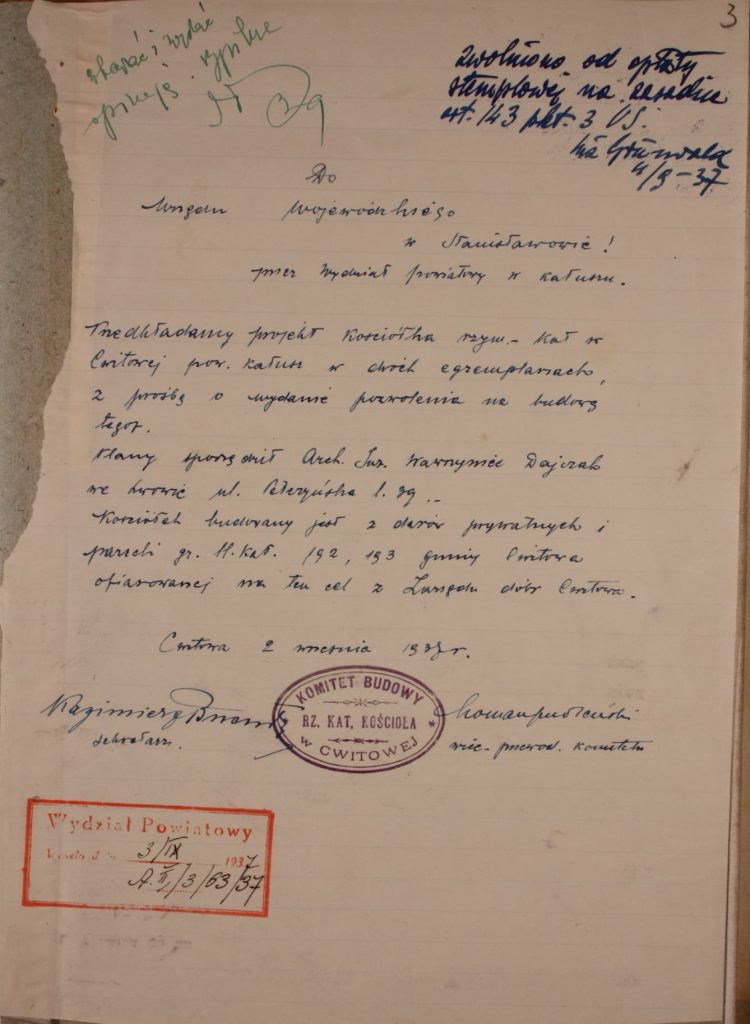 3
zbadać i wydać
opinję
39
zwolniono od opłaty
stemplowej na zasadzie
art. 143 pkt. 3 US.
4/9-37
Do
Urzędu Wojewódzkiego
w Stanisławowie!
przez Wydział powiatowy w Kałuszu.
Przedkładamy projekt Kościółka rzym.- Kat w
Cwitowej pow. Kałusz w dwóch egzemplarzach,
z prośbą o wydanie pozwolenia na budowę
tegoż.
Plany sporządził Arch. Inż. Wawrzyniec Dajczak
we Lwowie ul. Pełczyńska l. 39.-
Kościółek budowany jest z darów prywatnych i
parceli gr. l. kat. 192, 193 gminy Cwitowa
ofiarowanej na ten cel z Zarządu dóbr Cwitowa.
Cwitowa 2 września 1937 r.
Kazimierz
sekretarz.
KOMITET BUDOWY
RZ. KAT. KOŚCIOŁA
W CWITOWEJ
Roman
wice-przewod. komitetu
Wydział Powiatowy
3/IX 1937
A.II/3/63/37